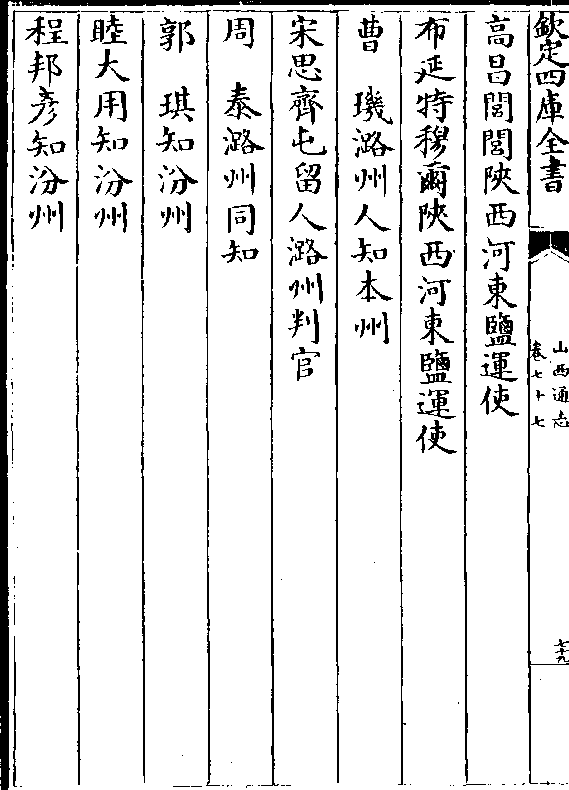 欽定四庫全書
山西通志
卷七十七
七十九
高昌閭閭陜西河東鹽運使
布延特穆爾陜西河東鹽運使
曹　璣潞州人知本州
宋思齊屯留人潞州判官
周　泰潞州同知
郭　琪知汾州
睦大用知汾州
程邦彥知汾州